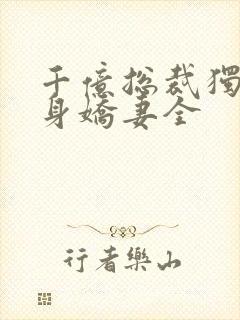 千億總裁獨
身嬌妻全
行者樂山